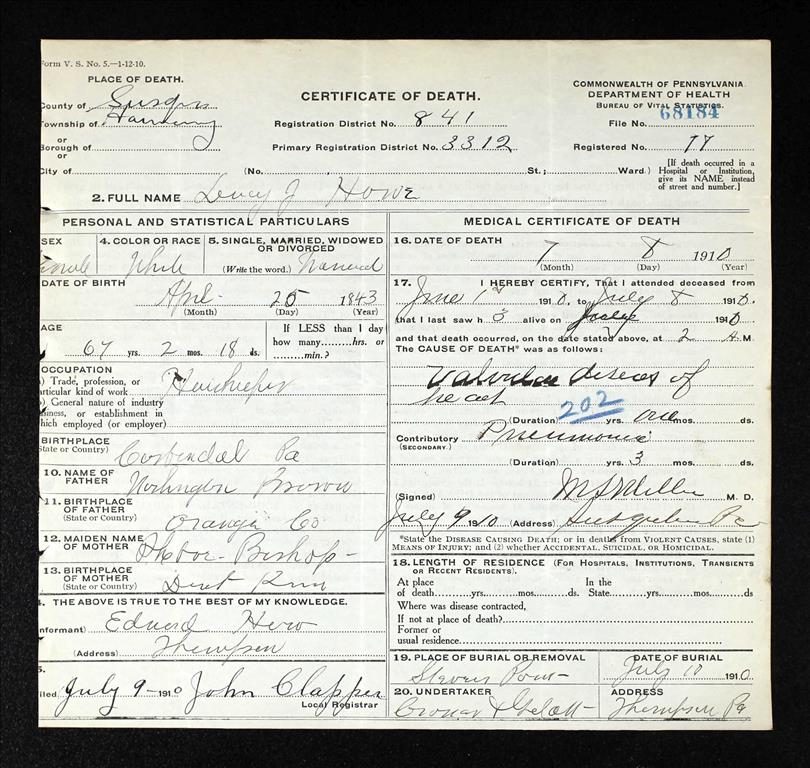 Form V. S. No. 5.—1-12-10.
PLACE OF DEATH.
County of Susq'a
Township of Harmony
or
Borough of
or
City of
CERTIFICATE OF DEATH.
Registration District No. 841
Primary Registration District No. 3312
(No. St.; Ward)
COMMONWEALTH OF PENNSYLVANIA
DEPARTMENT OF HEALTH
BUREAU OF VITAL STATISTICS.
File No. 68184
Registered No. 77
[If death occurred in a Hospital or Institution, give its NAME instead of street and number.]
2. FULL NAME Lucy J Howe
PERSONAL AND STATISTICAL PARTICULARS
SEX
4. COLOR OR RACE White
5. SINGLE, MARRIED, WIDOWED OR DIVORCED
(Write the word.) Married
DATE OF BIRTH
April 25 1843
(Month) (Day) (Year)
AGE
67 yrs. 2 mos. 18 ds.
If LESS than 1 day how many hrs. or min.?
OCCUPATION
(a) Trade, profession, or particular kind of work Housekeeper
(b) General nature of industry business, or establishment in which employed (or employer)
BIRTHPLACE
(State or Country) Carbondale Pa
10. NAME OF FATHER Brown
11. BIRTHPLACE OF FATHER
(State or Country) Orange Co
12. MAIDEN NAME OF MOTHER Bishop
13. BIRTHPLACE OF MOTHER
(State or Country)
THE ABOVE IS TRUE TO THE BEST OF MY KNOWLEDGE.
(Informant) Edward How
(Address) Thompson
Filed July 9 - 1910 John Clapper
Local Registrar
MEDICAL CERTIFICATE OF DEATH
16. DATE OF DEATH
7 8 1910
(Month) (Day) (Year)
17. I HEREBY CERTIFY, That I attended deceased from
June 1st 1910, to July 8 1910,
that I last saw h alive on July 1910
and that death occurred, on the date stated above, at 2 A M.
The CAUSE OF DEATH* was as follows:
Valvular diseas of
heart
202
(Duration) yrs. one mos. ds.
Contributory Pneumonia
(SECONDARY.)
(Duration) yrs. 3 mos. ds.
(Signed) Miller M. D.
July 9 1910 (Address) Susquehanna Pa
*State the DISEASE CAUSING DEATH; or in deaths from VIOLENT CAUSES, state (1) MEANS OF INJURY; and (2) whether ACCIDENTAL, SUICIDAL, OR HOMICIDAL.
18. LENGTH OF RESIDENCE (FOR HOSPITALS, INSTITUTIONS, TRANSIENTS OR RECENT RESIDENTS).
At place of death yrs. mos. ds. In the State yrs. mos. ds
Where was disease contracted,
If not at place of death?
Former or usual residence
19. PLACE OF BURIAL OR REMOVAL
Stevens Point
DATE OF BURIAL
July 10 1910
20. UNDERTAKER
Gelatt
ADDRESS
Thompson Pa